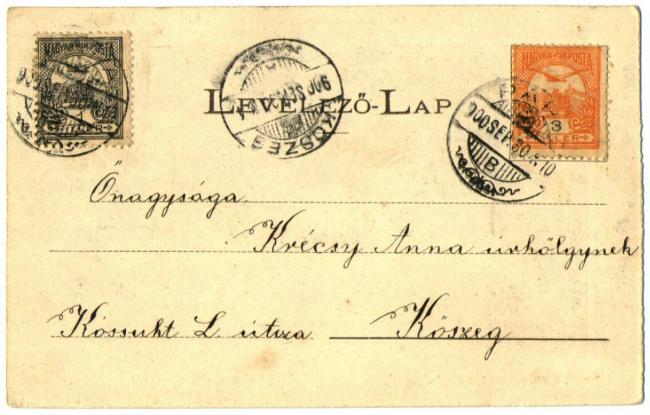 MAGYAR KIR. POSTA
1
FILLÉR
KŐSZEG
LEVELEZŐ-LAP
900 SEP 30
B
MAGYAR KIR. POSTA
3
FILLÉR
Őnagysága
Krécsy Anna úrhölgynek
Kossuht L. útcza Kőszeg